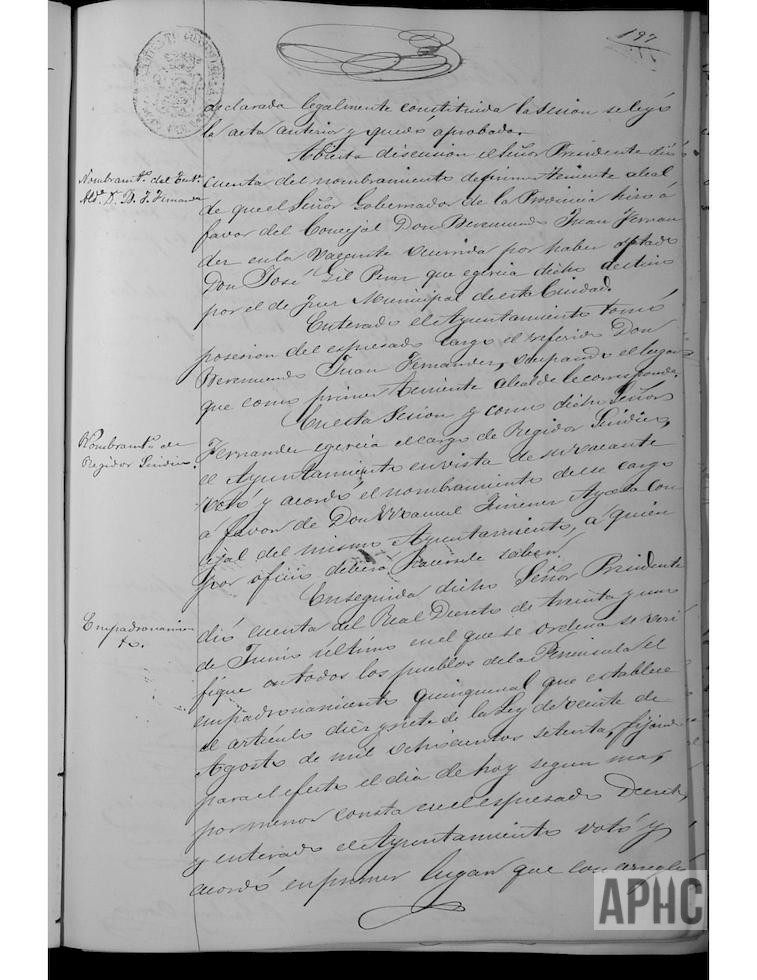 197
declarada legalmente constituida la Sesion se leyó
la acta anterior y quedó aprobada.
Nombramto. del Tente.
Alde. D. B. J. Fernandez
Abierta discusion el Señor Presidente dió
cuenta del nombramiento de primer teniente alcal
de que el Señor Gobernador de la Provincia hizo á
favor del Concejal Don Beremundo Juan Fernan
dez en la vacante ocurrida por haber optado
Don José Gil Perez que egercia dicho destino
por el de Juez Municipal de esta Ciudad.
Enterado el Ayuntamiento tomó
posesion del espresado cargo el referido Don
Beremundo Juan Fernandez, ocupando el lugar
que como primer teniente alcalde le corresponde.
Nombramto. de
Regidor Sindico.
En esta Sesion y como dicho Señor
Fernandez egercia el cargo de Regidor Sindico,
el Ayuntamiento en vista de su vacante
votó y acordó el nombramiento de ese cargo
á favor de Don Manuel Jimenez Ayala Con
cejal del mismo Ayuntamiento, á quien
por oficio deberá hacersele saber.
Empadronamien
to.
Enseguida dicho Señor Presidente
dió cuenta del Real Decreto de treinta y uno
de Junio ultimo en el que se ordena se veri
fique en todos los pueblos de la Peninsula el
empadronamiento quinquenal que establece
el articulo diez y siete de la Ley de veinte de
Agosto de mil ochocientos setenta, fijando
para el efecto el dia de hoy segun mas
por menor consta en el espresado Decreto,
y enterado el Ayuntamiento votó y
acordó en primer lugar que con arreglo
APHC